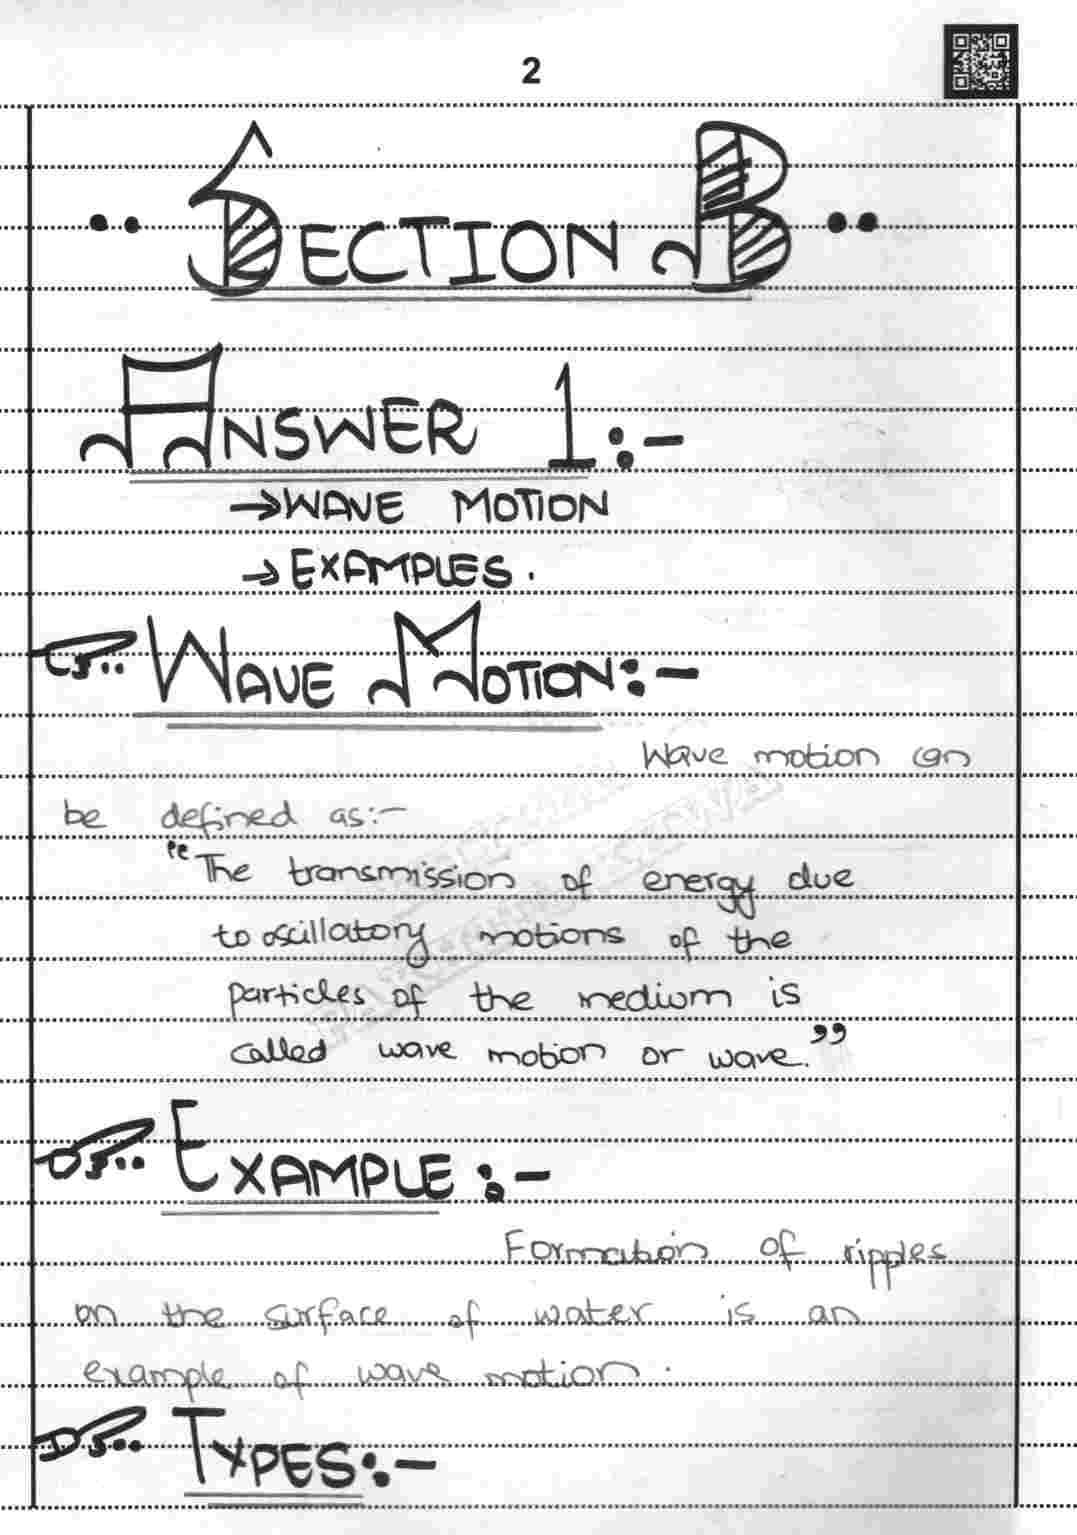 2
SECTION B
ANSWER 1:-
→ WAVE MOTION
→ EXAMPLES.
WAVE MOTION:-
Wave motion can
be defined as:-
"The transmission of energy due
to oscillatory motions of the
particles of the medium is
called wave motion or wave."
EXAMPLE:-
Formation of ripples
on the surface of water is an
example of wave motion.
TYPES:-